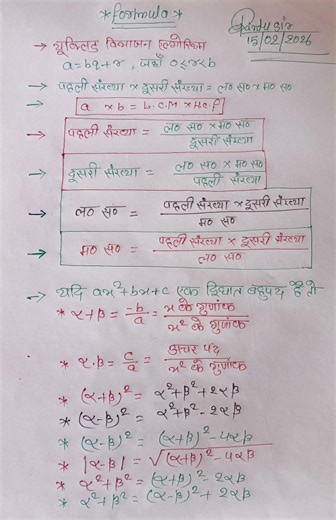 * formula *
Pantu sir
15/02/2026
→ यूक्लिड विभाजन एल्गोरिथ्म
a = bq + r, जहाँ 0 ≤ r < b
→ पहली संख्या × दूसरी संख्या = ल० स० × म० स०
→ [a × b = L.C.M × H.C.f]
→ पहली संख्या = ल० स० × म० स० / दूसरी संख्या
→ दूसरी संख्या = ल० स० × म० स० / पहली संख्या
→ ल० स० = पहली संख्या × दूसरी संख्या / म० स०
→ म० स० = पहली संख्या × दूसरी संख्या / ल० स०
→ यदि ax²+bx+c एक द्विघात बहुपद है तो
* α+β = -b/a = x के गुणांक / x² के गुणांक
* α.β = c/a = अचर पद / x² के गुणांक
* (α+β)² = α²+β²+2αβ
* (α-β)² = α²+β²-2αβ
* (α-β)² = (α+β)²-4αβ
* |α-β| = √(α+β)²-4αβ
* α²+β² = (α+β)²-2αβ
* α²+β² = (α-β)²+2αβ